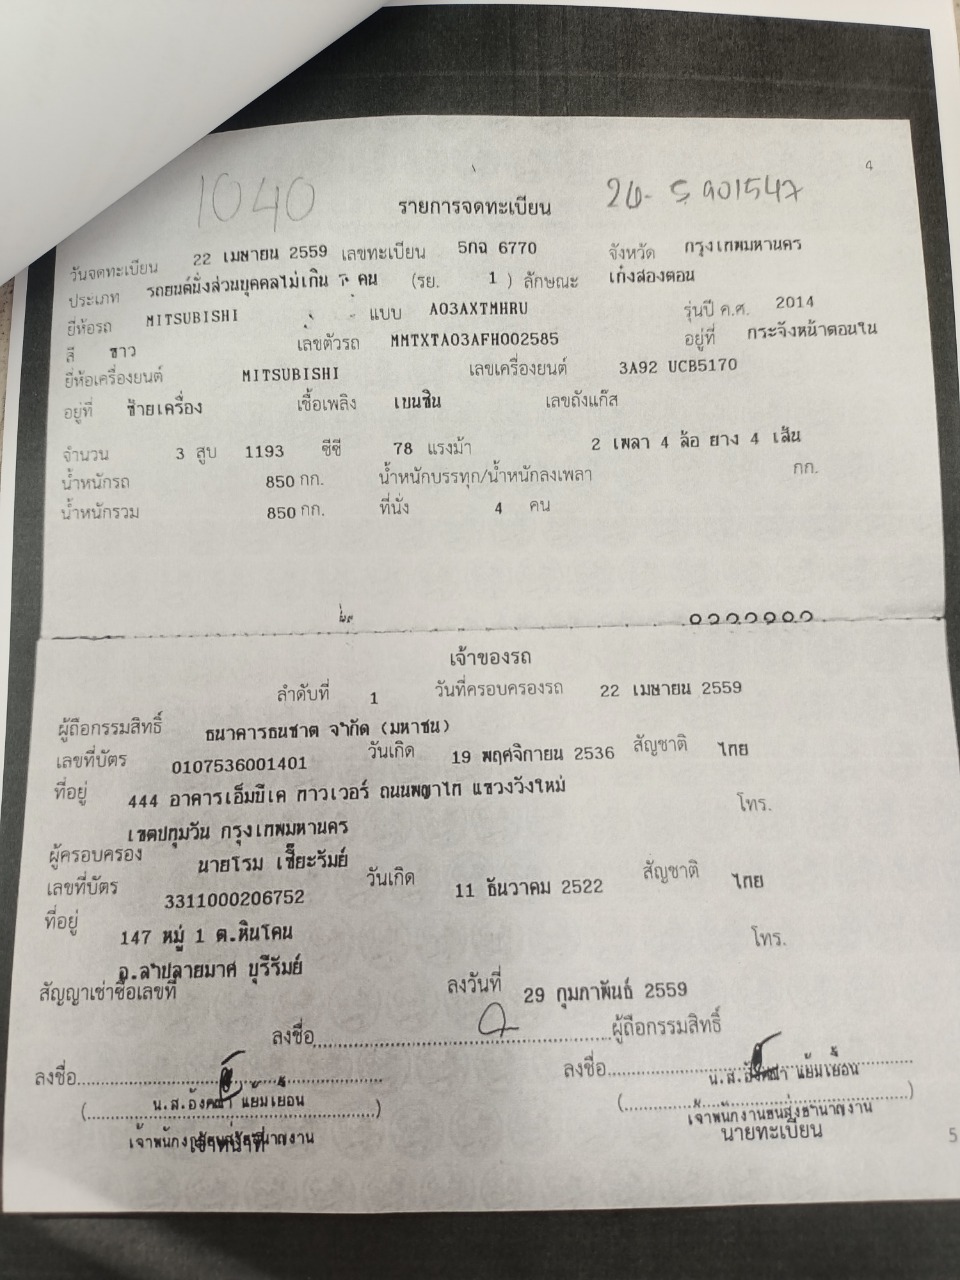 4
1040 26- 5 901547
รายการจดทะเบียน
วันจดทะเบียน 22 เมษายน 2559 เลขทะเบียน 5กฉ 6770 จังหวัด กรุงเทพมหานคร
ประเภท รถยนต์นั่งส่วนบุคคลไม่เกิน 7 คน (รย. 1 ) ลักษณะ เก๋งสองตอน
ยี่ห้อรถ MITSUBISHI แบบ A03AXTMHRU รุ่นปี ค.ศ. 2014
สี ขาว เลขตัวรถ MMTXTA03AFH002585 อยู่ที่ กระจังหน้าตอนใน
ยี่ห้อเครื่องยนต์ MITSUBISHI เลขเครื่องยนต์ 3A92 UCB5170
อยู่ที่ ซ้ายเครื่อง เชื้อเพลิง เบนซิน เลขถังแก๊ส
จำนวน 3 สูบ 1193 ซีซี 78 แรงม้า 2 เพลา 4 ล้อ ยาง 4 เส้น
น้ำหนักรถ 850 กก. น้ำหนักบรรทุก/น้ำหนักลงเพลา กก.
น้ำหนักรวม 850 กก. ที่นั่ง 4 คน
เจ้าของรถ
ลำดับที่ 1 วันที่ครอบครองรถ 22 เมษายน 2559
ผู้ถือกรรมสิทธิ์ ธนาคารธนชาต จำกัด (มหาชน)
เลขที่บัตร 0107536001401 วันเกิด 19 พฤศจิกายน 2536 สัญชาติ ไทย
ที่อยู่ 444 อาคารเอ็มบีเค ทาวเวอร์ ถนนพญาไท แขวงวังใหม่ โทร.
เขตปทุมวัน กรุงเทพมหานคร
ผู้ครอบครอง นายโรม เชี๊ยะรัมย์
เลขที่บัตร 3311000206752 วันเกิด 11 ธันวาคม 2522 สัญชาติ ไทย
ที่อยู่ 147 หมู่ 1 ต.หินโคน โทร.
อ.ลำปลายมาศ บุรีรัมย์
สัญญาเช่าซื้อเลขที่ ลงวันที่ 29 กุมภาพันธ์ 2559
ลงชื่อ ผู้ถือกรรมสิทธิ์
ลงชื่อ ลงชื่อ
น.ส.อังคณา แย้มเยื้อน น.ส.อังคณา แย้มเยื้อน
เจ้าพนักงานขนส่งชำนาญงาน เจ้าพนักงานขนส่งชำนาญงาน
เจ้าหน้าที่ นายทะเบียน
5